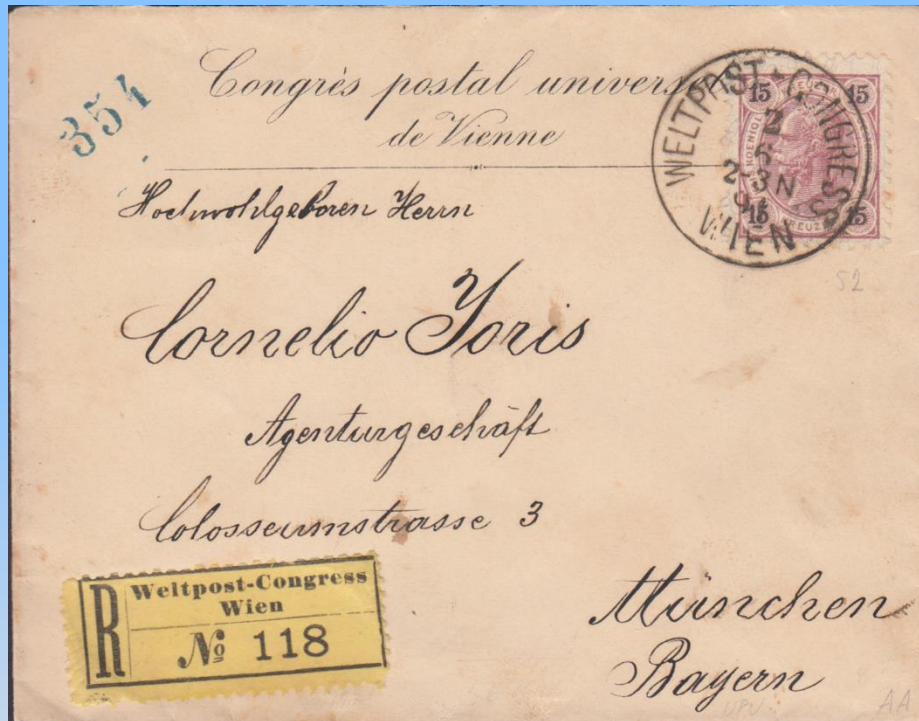 354
Congrès postal univers
de Vienne
WELTPOST * CONGRESS
2
6
2-3N
91
WIEN
15 15
15 15
52
Hochwohlgeboren Herrn
Cornelio Yoris
Agenturgeschäft
Colosseumstrasse 3
München
Bayern
R
Weltpost-Congress
Wien
№ 118
UPU
AA